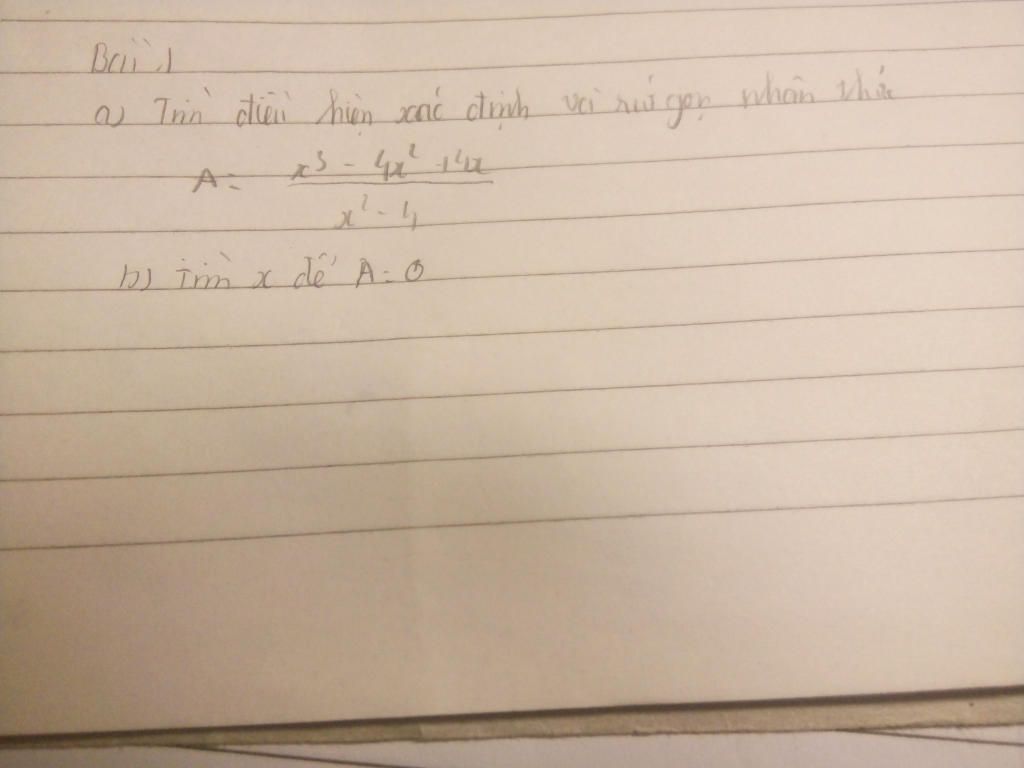 Bài 1
a) Tìm điều kiện xác định và rút gọn phân thức
A = \frac{x^3 - 4x^2 + 4x}{x^2 - 4}
b) Tìm x để A = 0